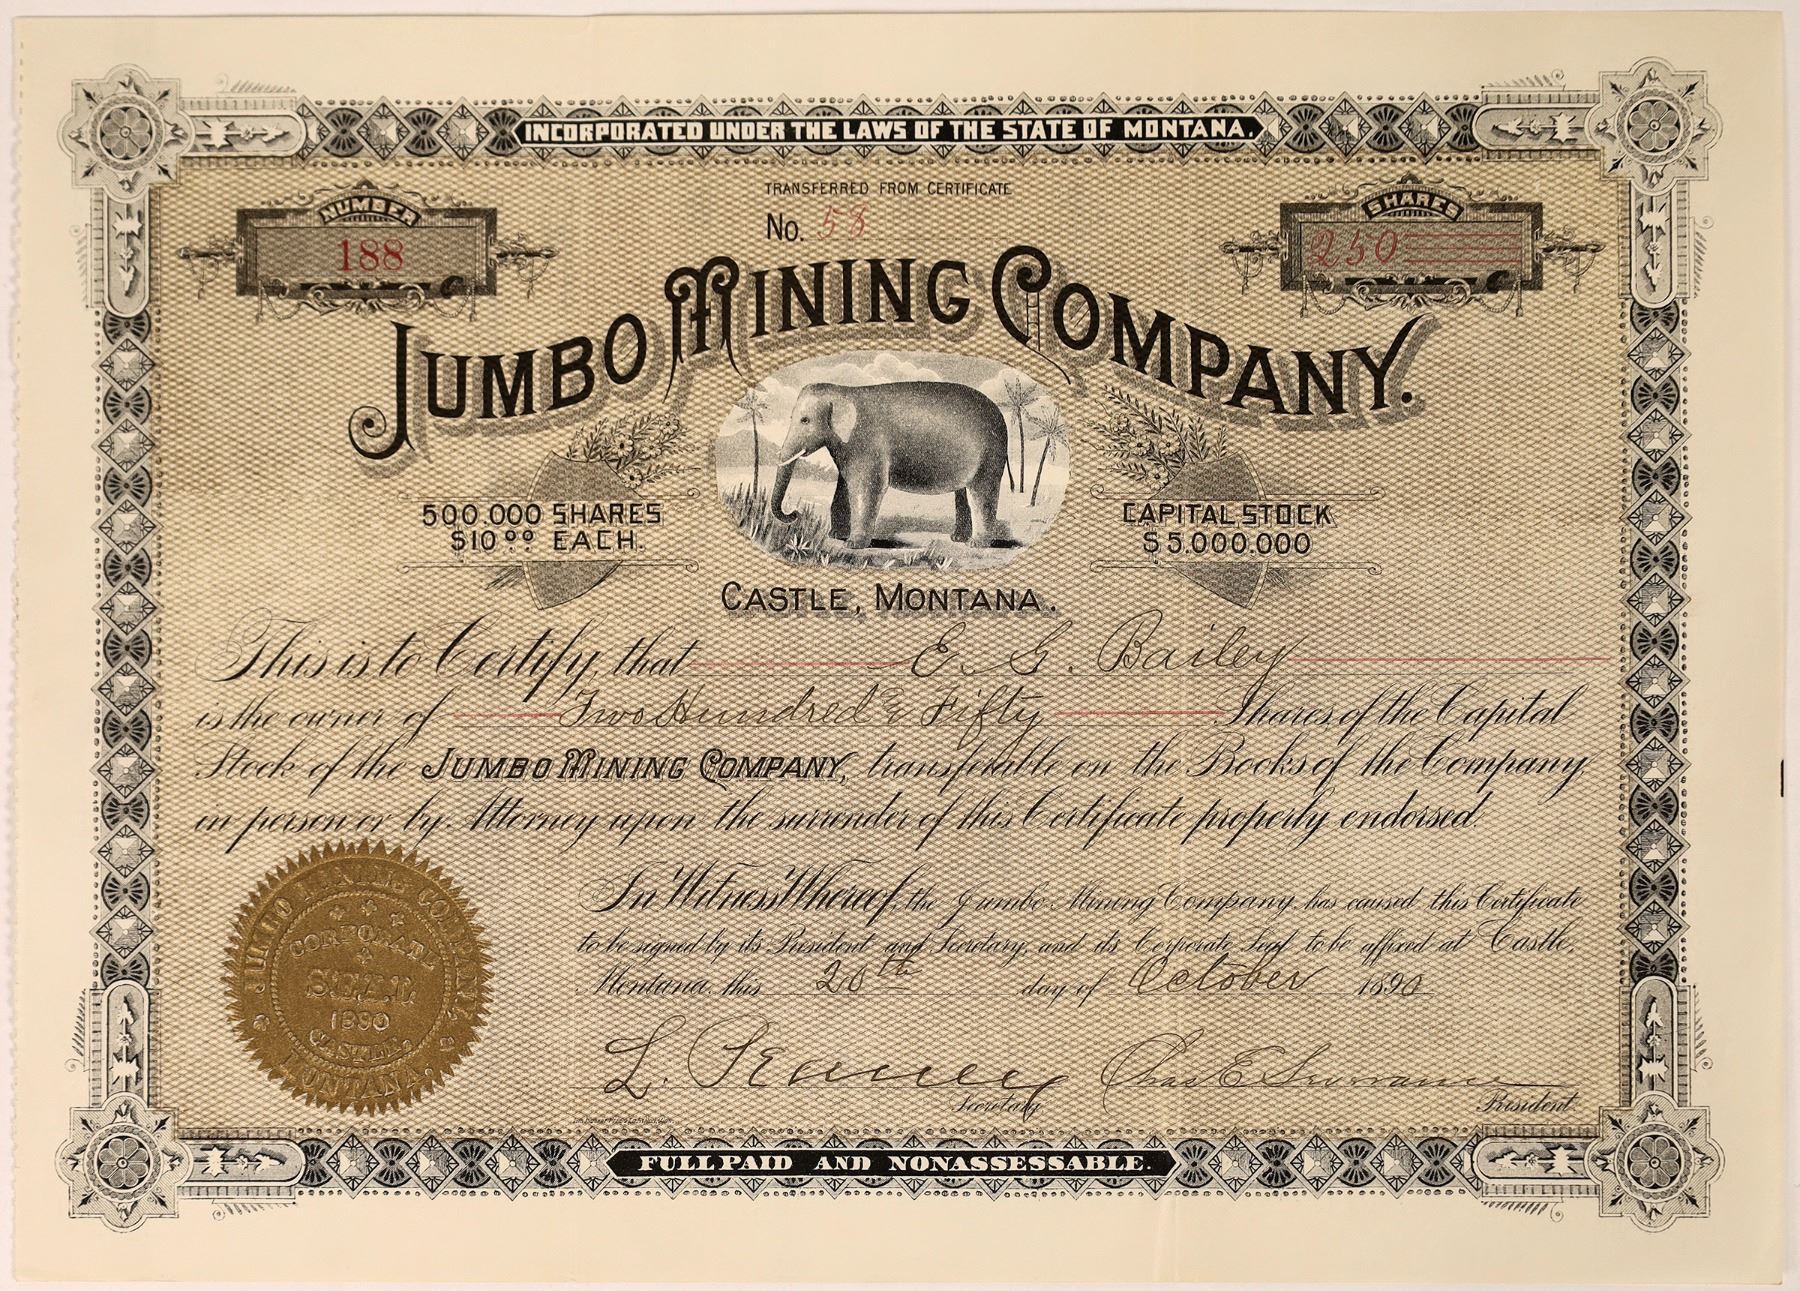 INCORPORATED UNDER THE LAWS OF THE STATE OF MONTANA.
TRANSFERRED FROM CERTIFICATE
No. 58
NUMBER
188
SHARES
250
JUMBO MINING COMPANY.
500.000 SHARES
$10.00 EACH.
CAPITAL STOCK
$5.000.000
CASTLE, MONTANA.
This is to Certify, that E. G. Bailey
is the owner of Two Hundred & Fifty Shares of the Capital
Stock of the JUMBO MINING COMPANY, transferable on the Books of the Company,
in person or by Attorney upon the surrender of this Certificate properly endorsed.
In Witness Whereof, the Jumbo Mining Company, has caused this Certificate
to be signed by its President and Secretary, and its Corporate Seal to be affixed at Castle,
Montana, this 20th day of October 1890
JUMBO MINING COMPANY,
CORPORATE
SEAL
1890
CASTLE,
MONTANA
L.
Chas E.
Secretary
President
FULL PAID AND NONASSESSABLE.